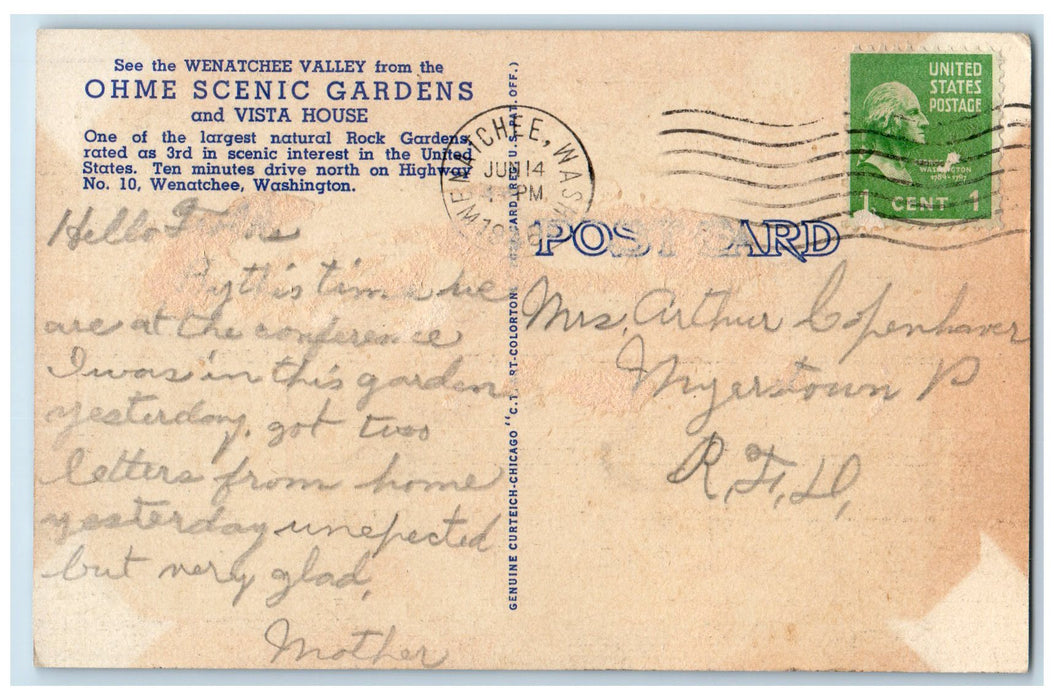 See the WENATCHEE VALLEY from the
OHME SCENIC GARDENS
and VISTA HOUSE
One of the largest natural Rock Gardens,
rated as 3rd in scenic interest in the United
States. Ten minutes drive north on Highway
No. 10, Wenatchee, Washington.
WENATCHEE, WASH
JUN 14
PM
UNITED
STATES
POSTAGE
WASHINGTON
1789-1797
1 CENT 1
POST CARD
GENUINE CURTEICH-CHICAGO "C.T. ART-COLORTONE POST CARD (REG. U.S. PAT. OFF.)
Hello
By this time we
are at the conference
I was in this garden
yesterday, got two
letters from home
yesterday unepected
but very glad,
Mother
Mrs. Arthur Copenhaver
Myerstown P
R.F.D.